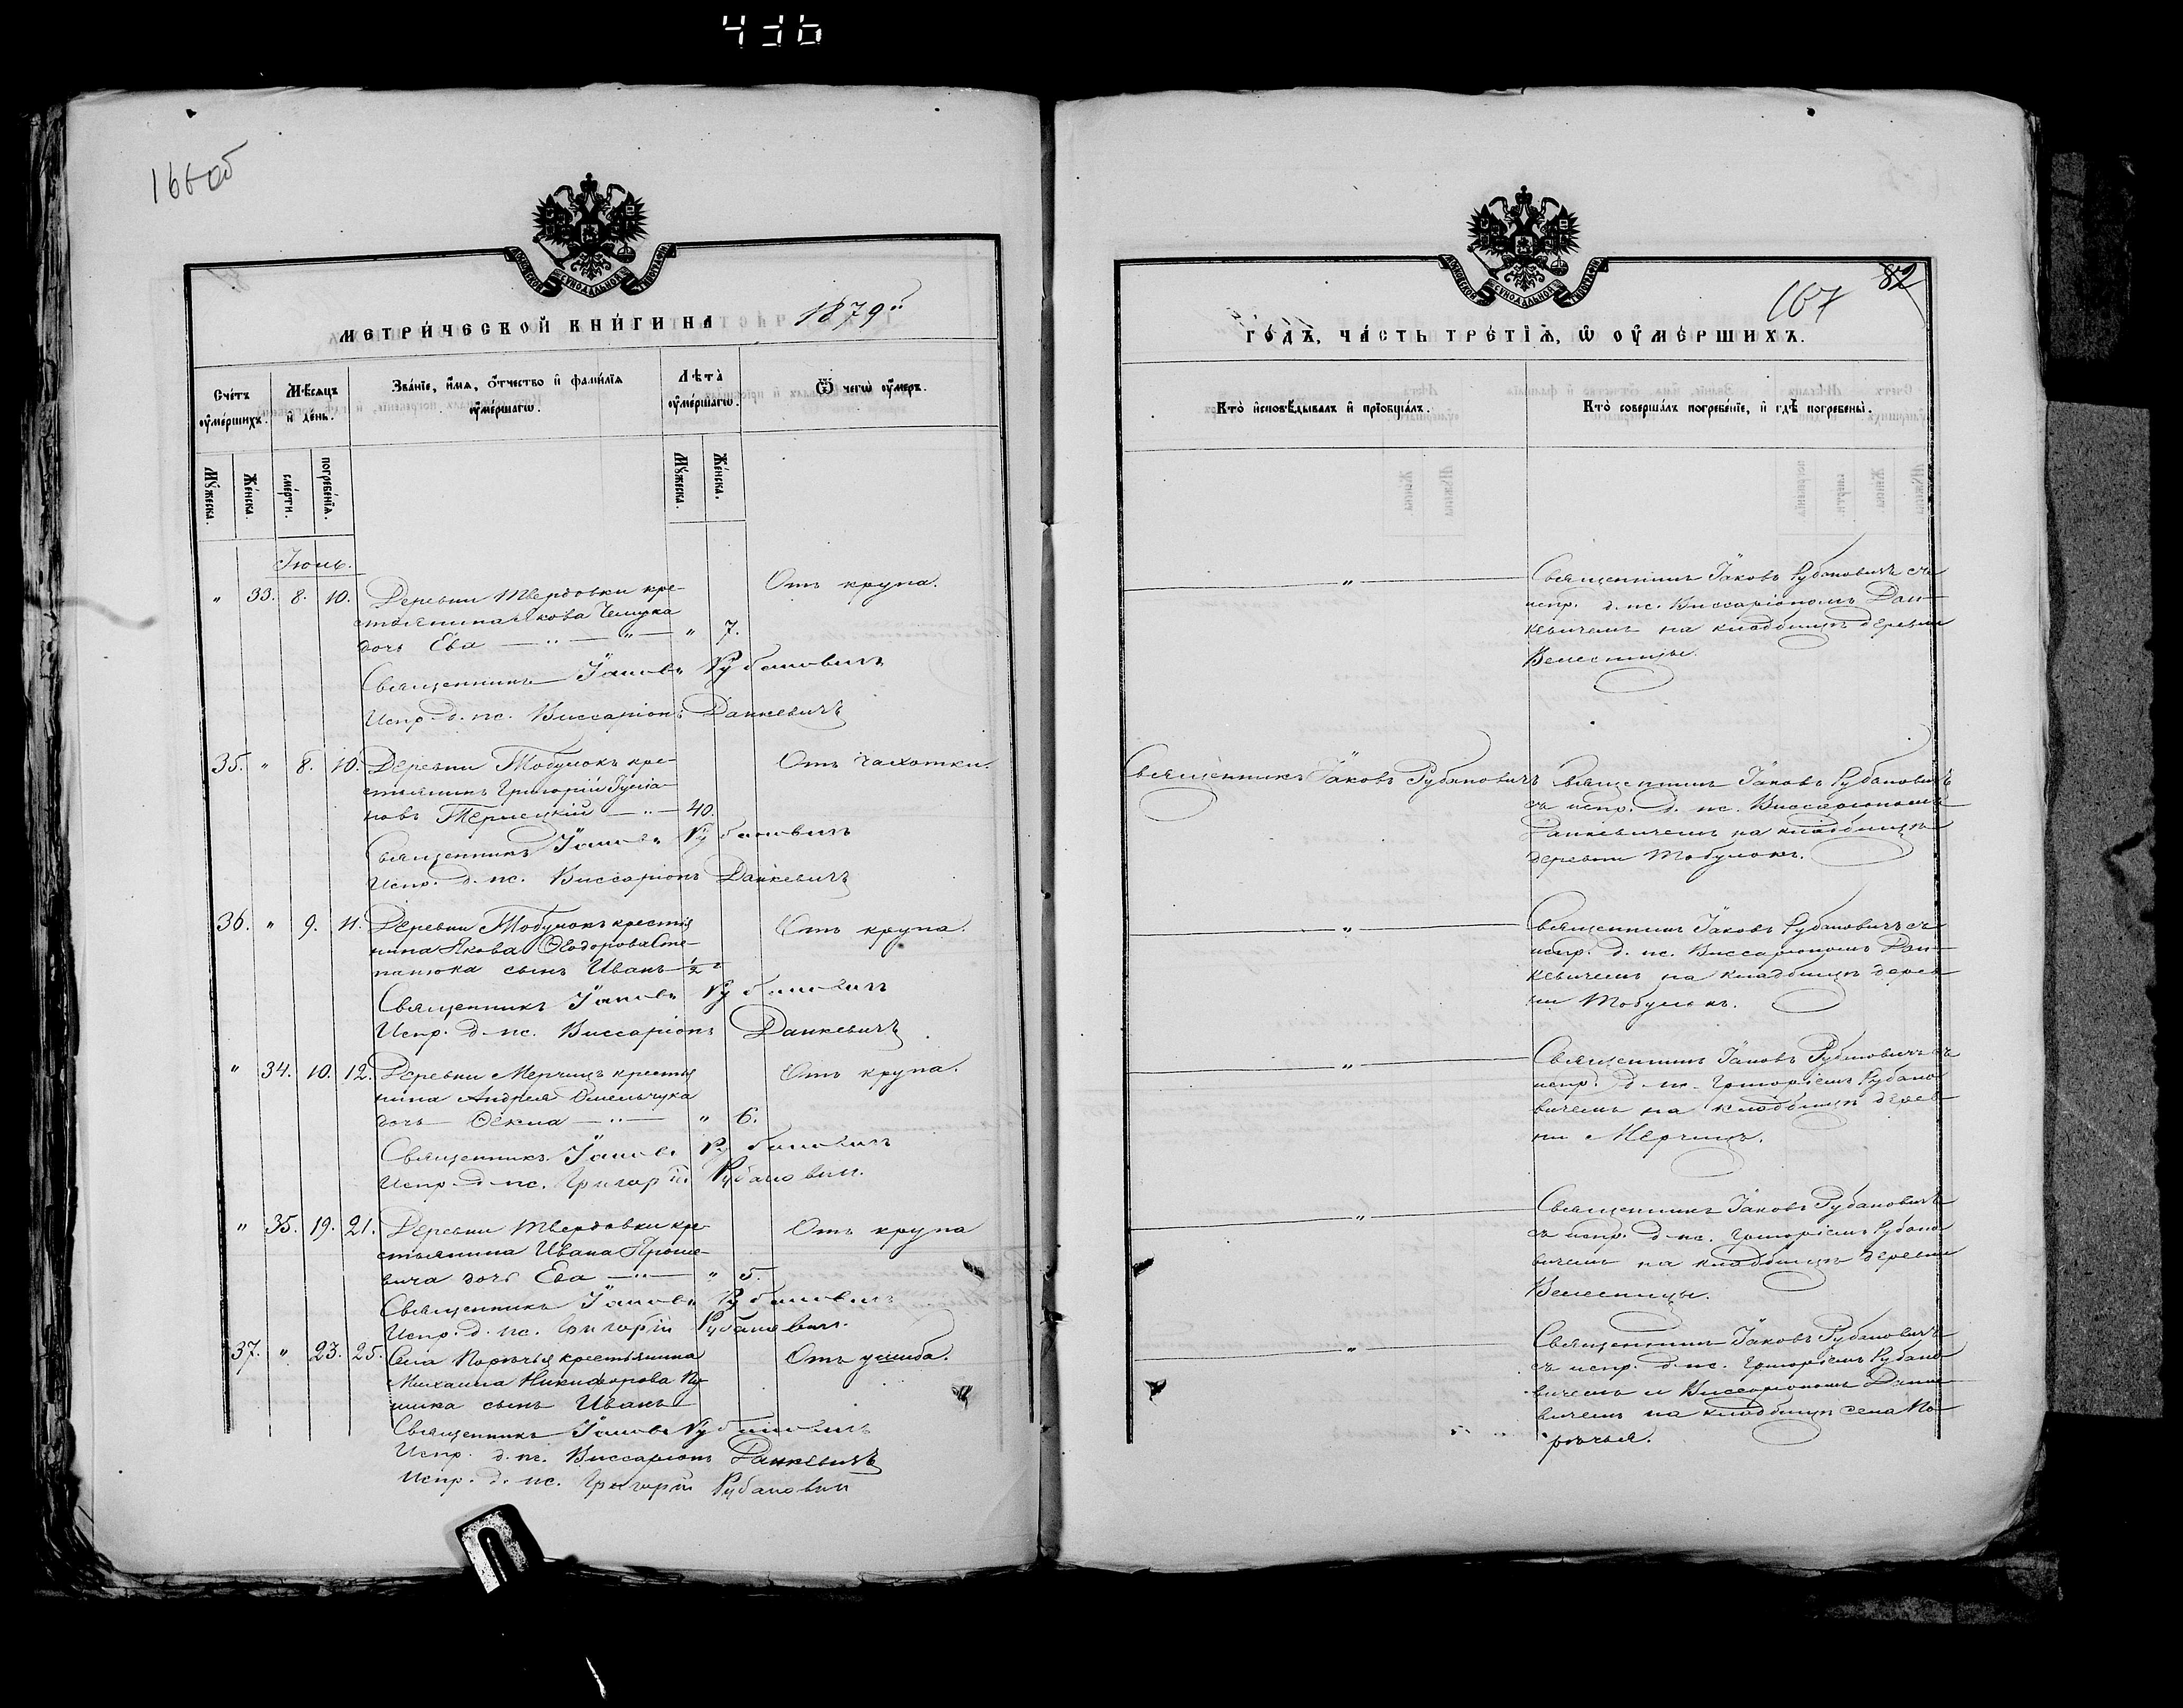 436
166 об
МОСКОВСКОЙ СѴНОДАЛЬНОЙ ТИПОГРАФІИ
МЕТРИ́ЧЕСКОЙ КНИ́ГИ НА 1879й
Сче́тъ ᲂу҆ме́ршихъ.
Мѣ́сяцъ и҆ де́нь.
Зва́нїе, и҆́мѧ, ѻ҆́тчество и҆ фами́лїѧ ᲂу҆ме́ршагѡ.
Лѣ́та ᲂу҆ме́ршагѡ.
Ѿ чегѡ̀ ᲂу҆́меръ.
Мꙋ́жеска.
Же́нска.
сме́рти.
погребе́нїѧ.
Мꙋ́жеска.
Же́нска.
Іюнь.
" 33. 8. 10. Деревни Твердовки кре-
стьянина Якова
дочь Ева — " — " 7.
Отъ крупа.
Священникъ Іаковъ Рубановичъ
Испр. д. пс. Виссаріонъ Данкевичъ
35. " 8. 10. Деревни Тобулокъ кре-
стьянинъ Григорій
новъ Терлецкій — " — 40.
Отъ чахотки.
Священникъ Іаковъ Рубановичъ
Испр. д. пс. Виссаріонъ Данкевичъ
36. " 9. 11. Деревни Тобулокъ крестья
нина Якова Ѳеодорова Сте-
панюка сынъ Иванъ 1/2
Отъ крупа.
Священникъ Іаковъ Рубановичъ
Испр. д. пс. Виссаріонъ Данкевичъ
" 34. 10. 12. Деревни Мерчицъ крестья
нина Андрея Омельчука
дочь Ѳекла — " — " 6.
Отъ крупа.
Священникъ Іаковъ Рубановичъ
Испр. д. пс. Григорій Рубановичъ.
" 35. 19. 21. Деревни Твердовки кре-
стьянина Ивана Яроше-
вича дочь Ева — " — " 5.
Отъ крупа
Священникъ Іаковъ Рубановичъ
Испр. д. пс. Григорій Рубановичъ.
37. " 23. 25. Села Порѣчья крестьянина
Михаила Никифорова
сынъ Иванъ
Отъ ушиба.
Священникъ Іаковъ Рубановичъ
Испр. д. пс. Виссаріонъ Данкевичъ
Испр. д. пс. Григорій Рубановичъ
МОСКОВСКОЙ СѴНОДАЛЬНОЙ ТИПОГРАФІИ
82
167
ГО́ДЪ, ЧА́СТЬ ТРЕ́ТЇѦ, Ѡ҆ ОУ҆МЕ́РШИХЪ.
Кто̀ и҆сповѣ́дывалъ и҆ прїѡбща́лъ.
Кто̀ соверша́лъ погребе́нїе, и҆ гдѣ̀ погребены̀.
"
Священникъ Іаковъ Рубановичъ съ
испр. д. пс. Виссаріономъ Дан-
кевичемъ на кладбищѣ деревни
Велесницы.
Священникъ Іаковъ Рубановичъ
Священникъ Іаковъ Рубановичъ
съ испр. д. пс. Виссаріономъ
Данкевичемъ на кладбищѣ
деревни Тобулокъ.
"
Священникъ Іаковъ Рубановичъ съ
испр. д. пс. Виссаріономъ Дан-
кевичемъ на кладбищѣ дерев
ни Тобулокъ.
"
Священникъ Іаковъ Рубановичъ съ
испр. д. пс. Григоріемъ Рубано
вичемъ на кладбищѣ дерев
ни Мерчицъ.
"
Священникъ Іаковъ Рубановичъ
съ испр. д. пс. Григоріемъ Рубано
вичемъ на кладбищѣ деревни
Велесницы.
"
Священникъ Іаковъ Рубановичъ
съ испр. д. пс. Григоріемъ Рубано
вичемъ и Виссаріономъ Данке
вичемъ на кладбищѣ села По
рѣчья.